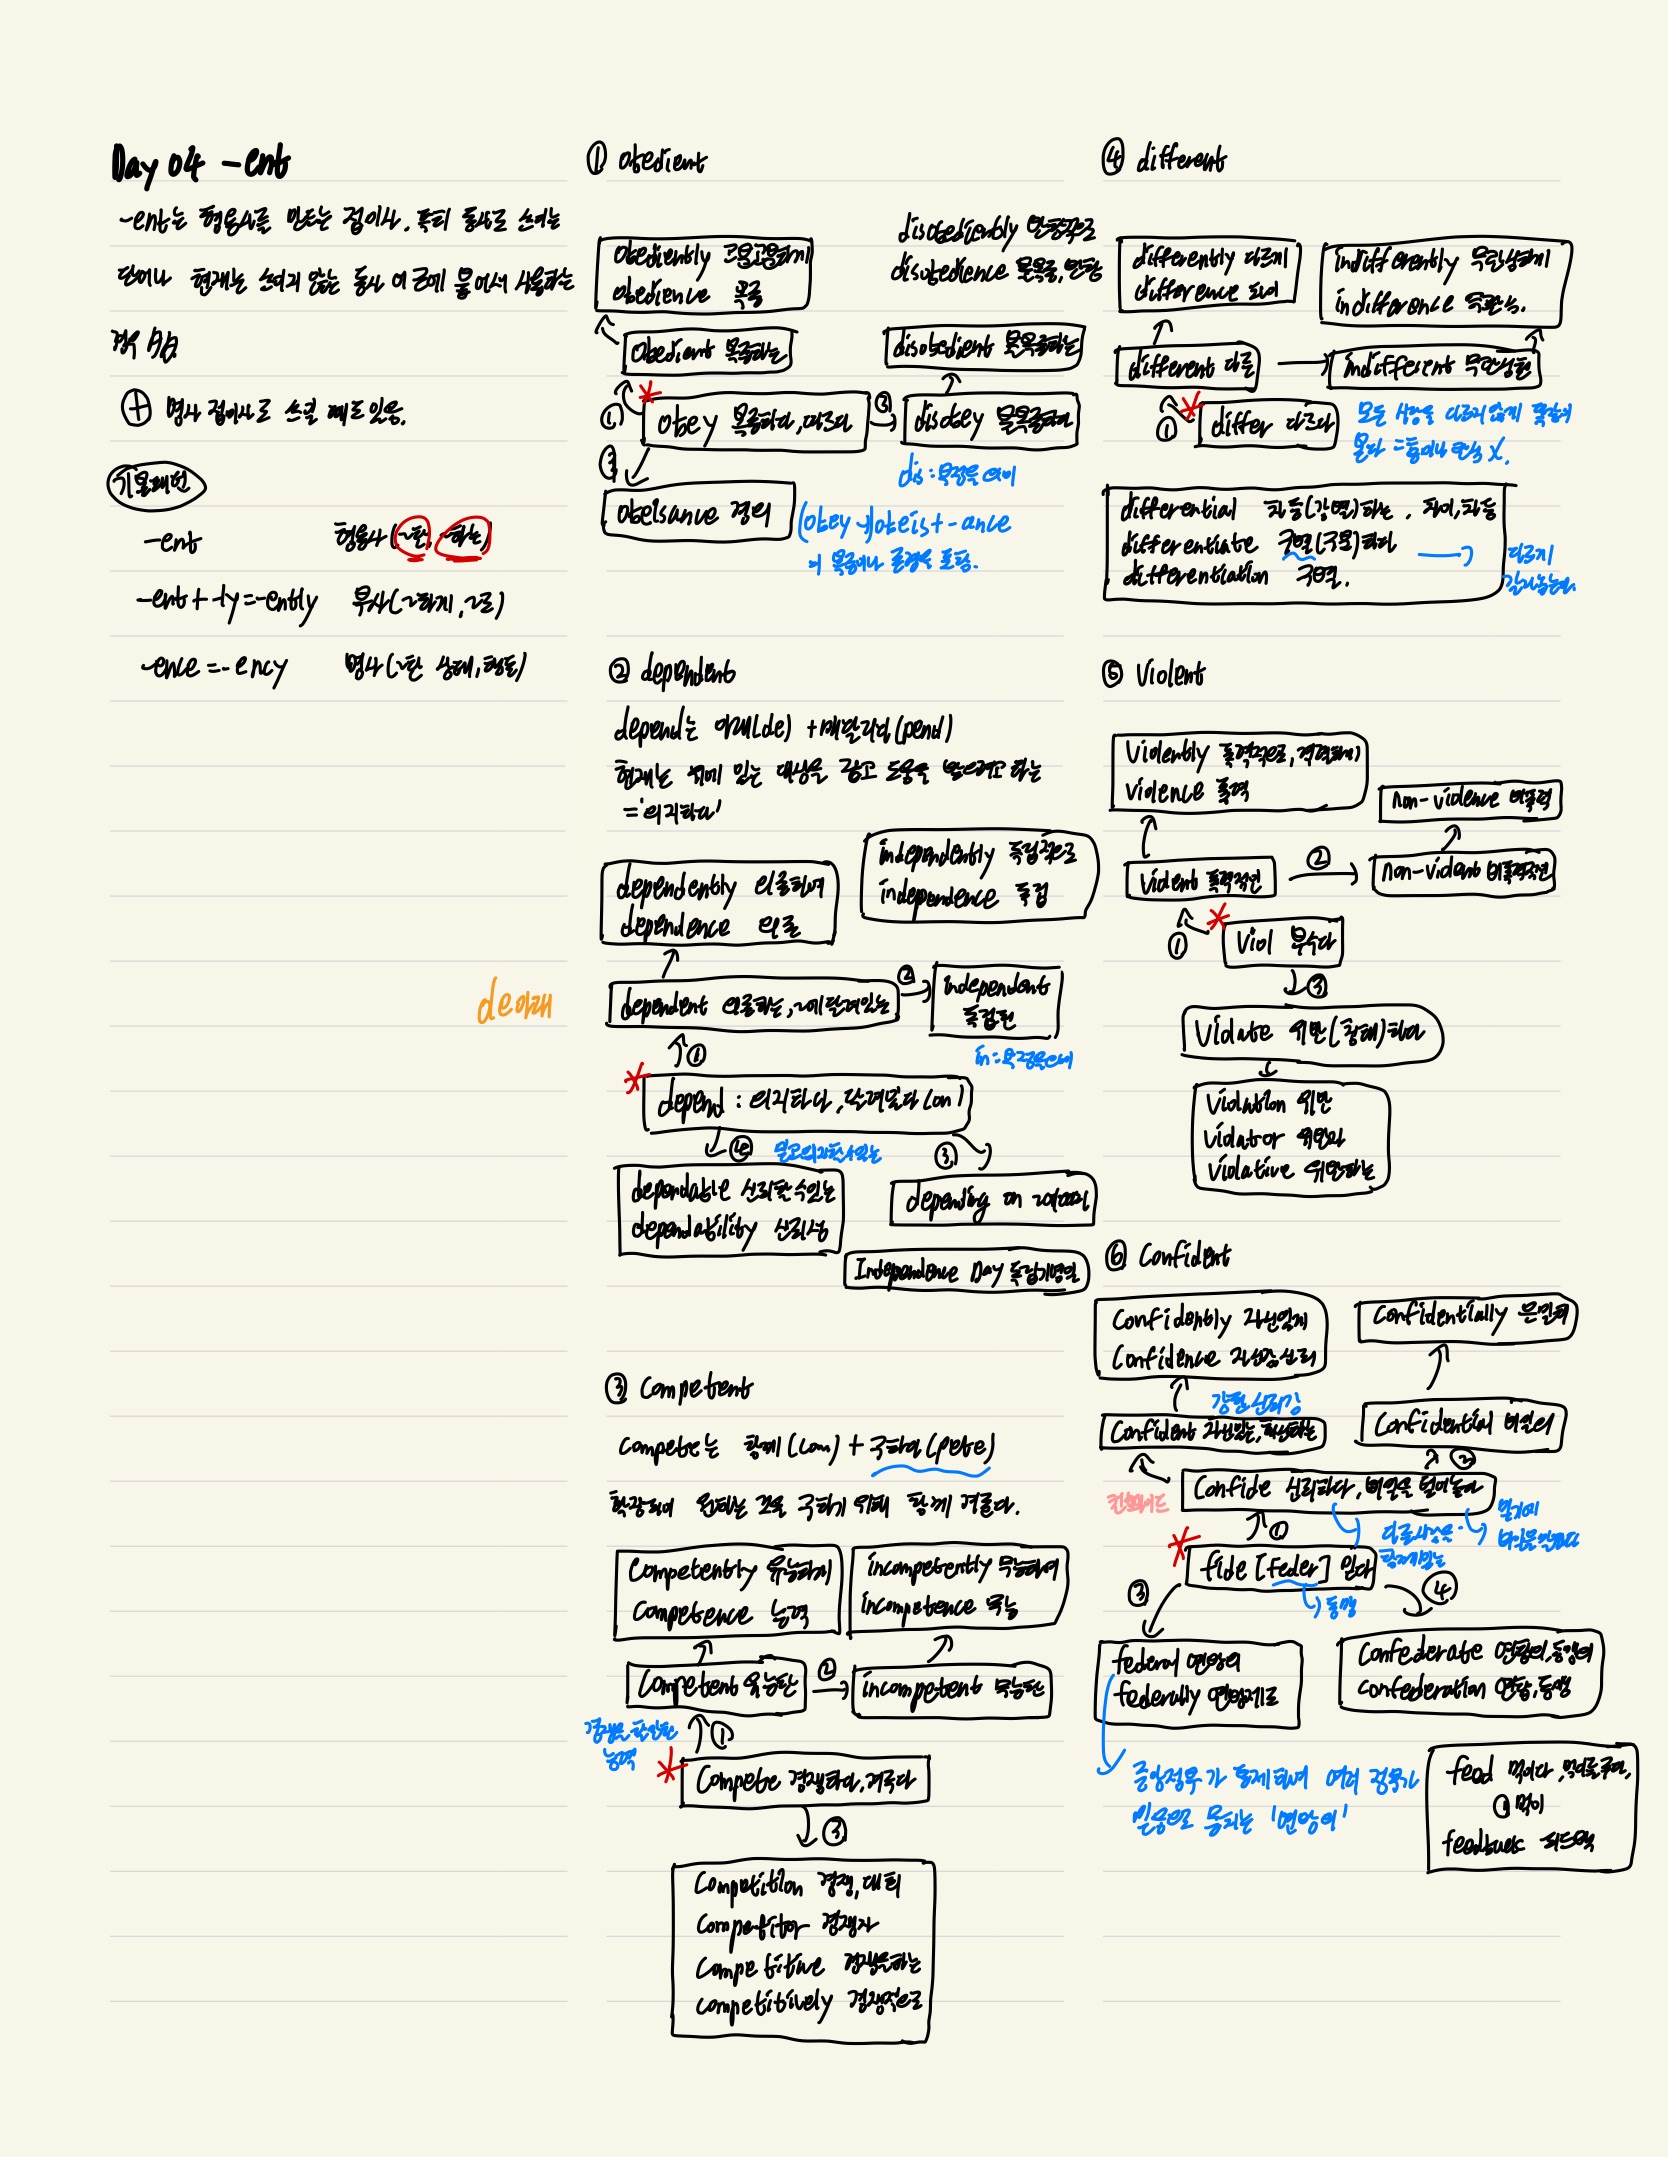 Day 04 -ent
-ent는 형용사를 만드는 접미사. 특히 동사로 쓰이는
단어나 현재는 쓰이지 않는 동사 어근에 붙어서 사용하는
경우 多
+ 명사 접미사로 쓰일 때도 있음.
기본패턴
-ent 형용사(~한, ~하는)
-ent + -ly = -ently 부사(~하게, ~로)
-ence = -ency 명사(~한 상태, 행동)
de 아래
① obedient
obediently 고분고분하게
obedience 복종
disobediently 반항적으로
disobedience 불복종, 반항
obedient 복종하는
disobedient 불복종하는
① obey 복종하다, 따르다 ②
disobey 불복종하다
dis : 부정을 의미
③
obeisance 경의
(obey → obeis + -ance
복종이나 존경을 포함.
② dependent
depend는 아래(de) + 매달리다(pend)
현재는 위에 있는 대상을 잡고 도움을 받으려고 하는
= '의지하다'
dependently 의존하여
dependence 의존
independently 독립적으로
independence 독립
dependent 의존하는, ~에 달려있는
② independent
독립된
in : 부정을 의미
①
depend : 의지하다, 달려있다(on)
④ 믿고 의지할 수 있는
③
dependable 신뢰할 수 있는
dependability 신뢰성
depending on ~에 따라
Independence Day 독립기념일
③ Competent
compete는 함께(com) + 구하다(pete)
확장되어 원하는 것을 구하기 위해 함께 겨룬다.
Competently 유능하게
Competence 능력
incompetently 무능하여
incompetence 무능
Competent 유능한
② incompetent 무능한
①
능력
Compete 경쟁하다, 겨루다
③
Competition 경쟁, 대회
Competitor 경쟁자
Competitive 경쟁을 하는
competitively 경쟁적으로
④ different
differently 다르게
difference 차이
indifferently 무관심하게
indifference 무관심.
different 다른
indifferent 무관심한
① differ 다르다
모든 사항을 다르지 않게 똑같이
본다 = 흥미나 관심 X.
differential 차등(차별)하는, 차이, 차등
differentiate 구별(구분)하다
differentiation 구별.
다르게
갈라놓는다
⑤ Violent
Violently 폭력적으로, 격렬하게
violence 폭력
non-violence 비폭력
violent 폭력적인
② non-violent 비폭력적인
① Viol 부수다
③
Violate 위반(침해)하다
Violation 위반
violator 위반자
violative 위반하는
⑥ Confident
Confidently 자신있게
Confidence 자신감, 신뢰
Confidentially 은밀히
강한 신뢰감
Confident 자신있는, 확신하는
Confidential 비밀의
②
컨파이드
Confide 신뢰하다, 비밀을 털어놓다
①
다른 사람을
fide [feder] 믿다
동맹
③
④
federal 연방의
federally 연방제로
Confederate 연합의, 동맹의
confederation 연합, 동맹
중앙정부가 통제하며 여러 정부가
믿음으로 뭉치는 '연방의'
feed 먹이다, 먹이를 주다,
먹이
feedback 피드백